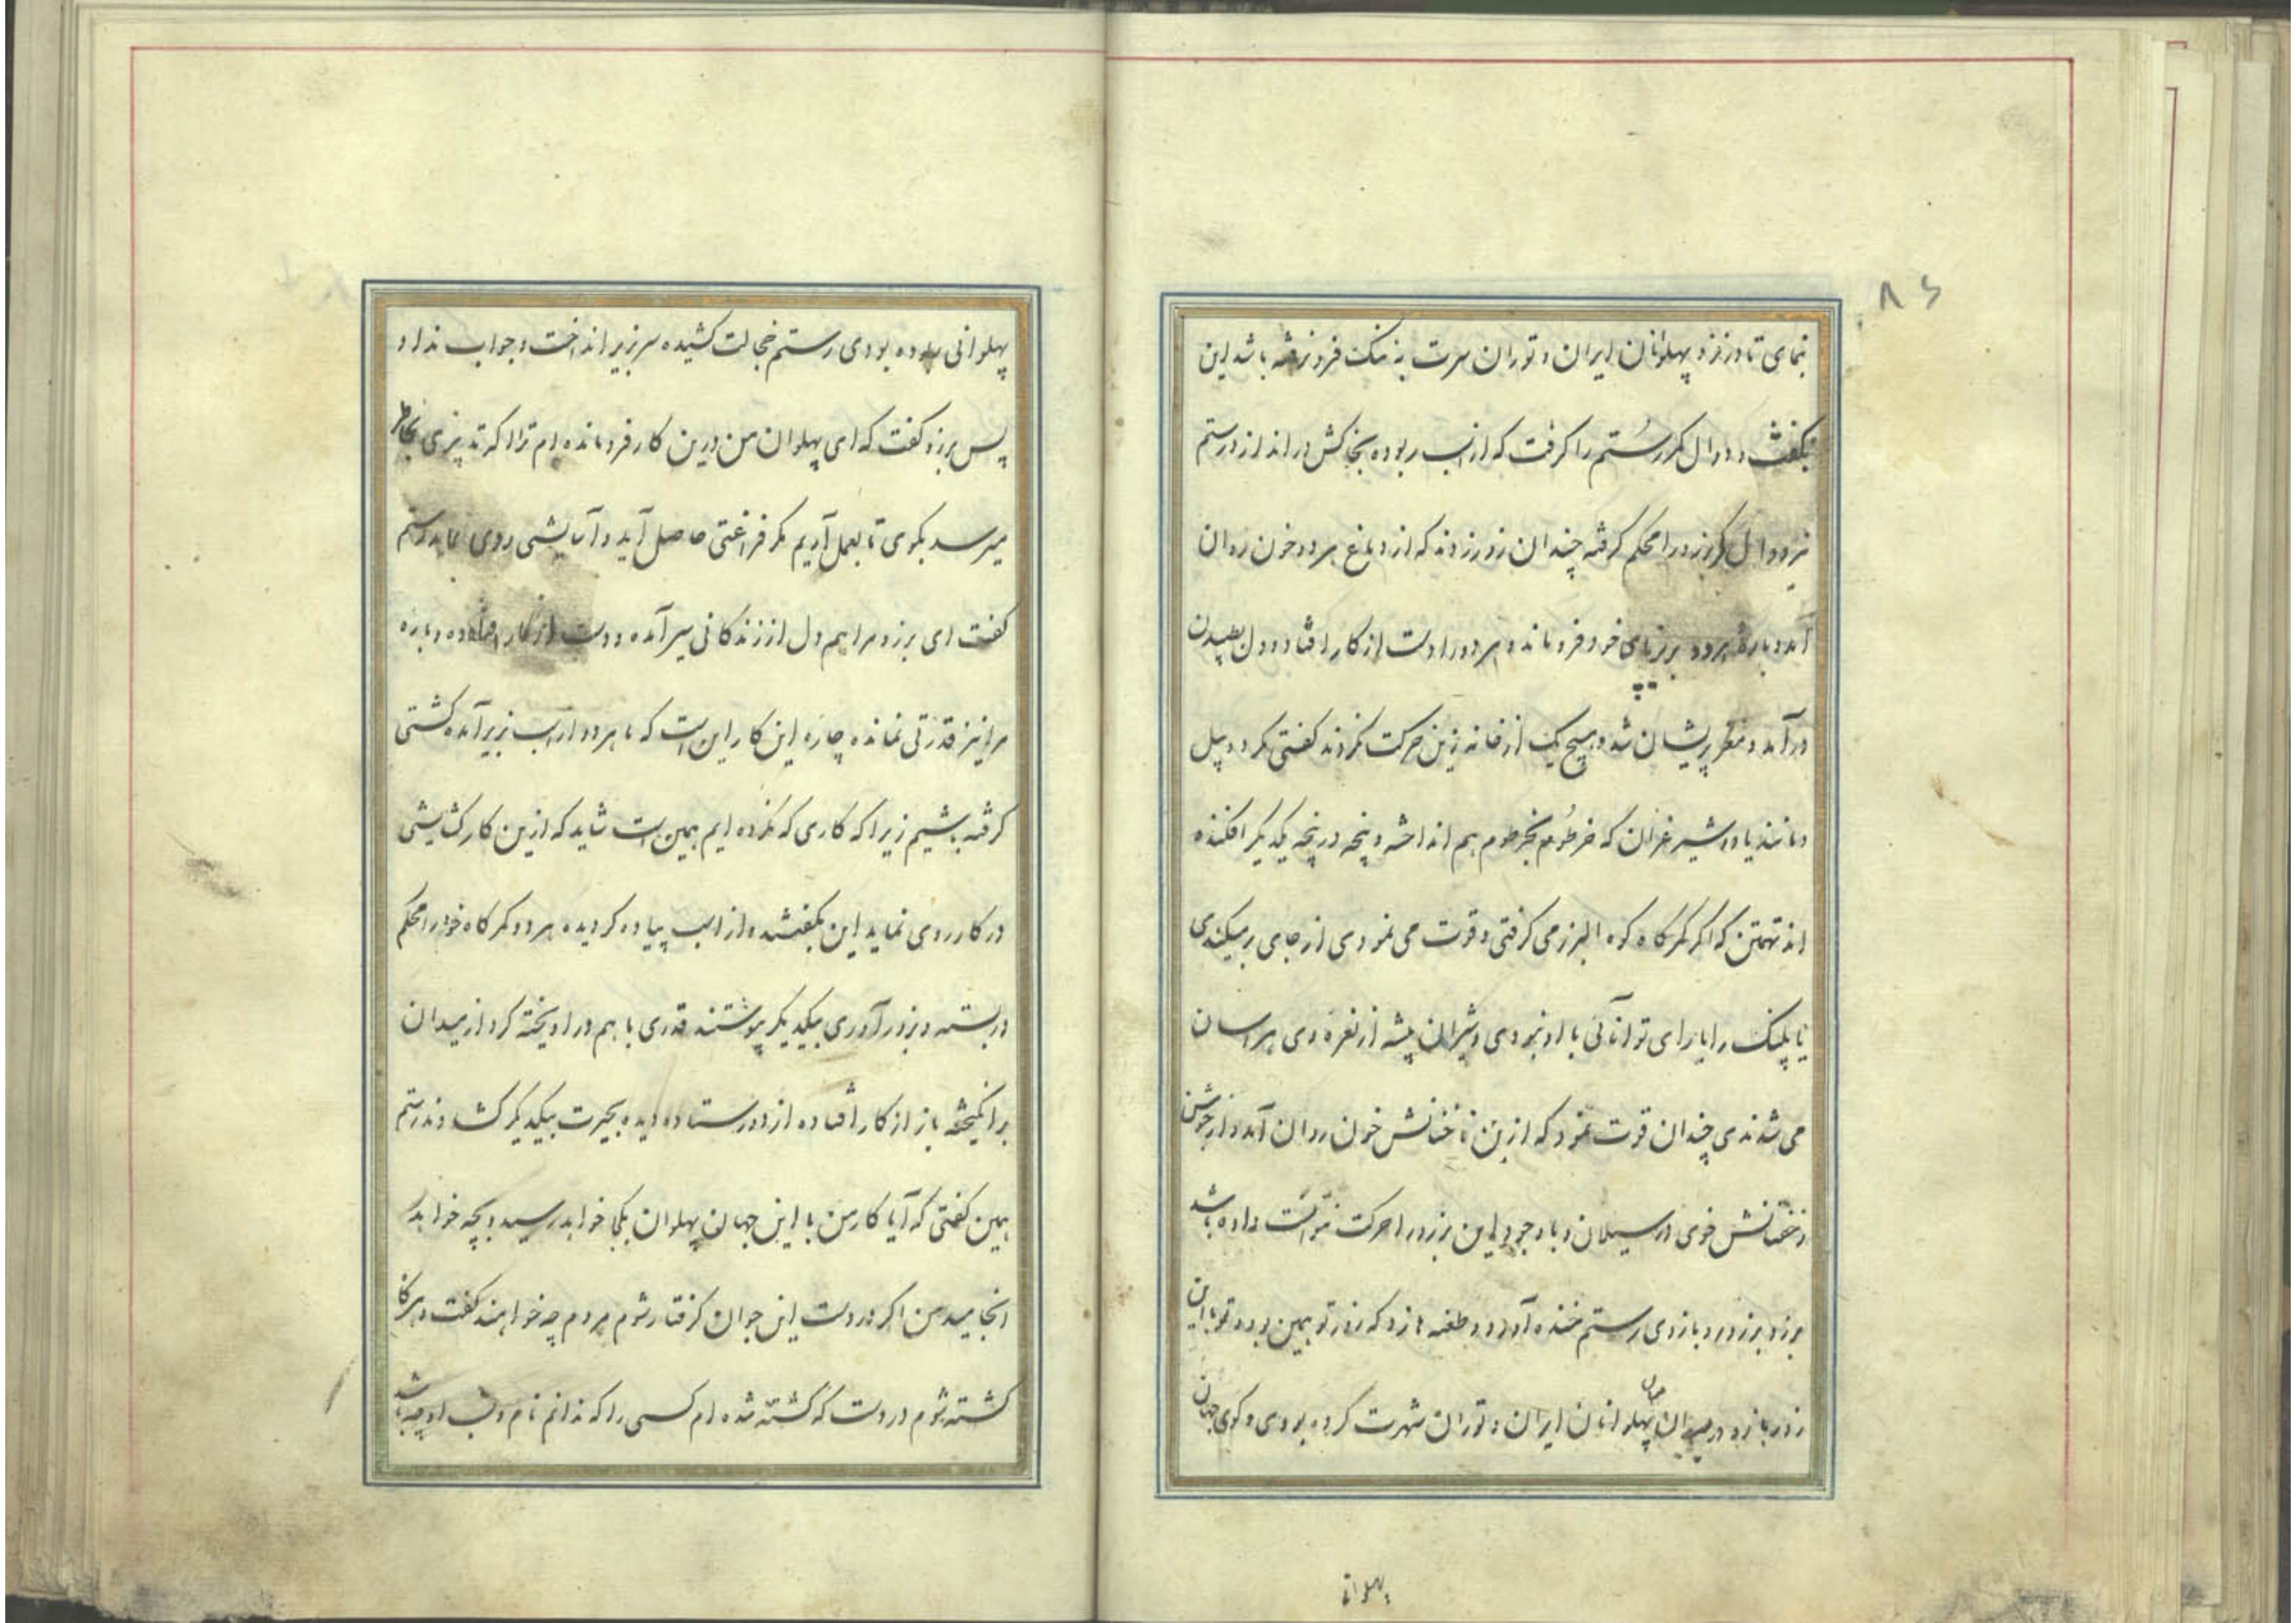 ۸۶
نمای تا در نزد پهلوانان ایران و توران سرت به ننک فرو نرفته باشد این
بکفت و دوال کمر رستم را کرفت که از اسب ربوده بخاکش در اندازد رستم
نیز دوال کمر برزو را محکم کرفته چندان زور زدند که از دماغ هر دو خون روان
آمد و باره هر دو بزیر پای خود فرو ماند و هر دو را دست از کار افتاد و دل بطپیدن
در آمد و مغز پریشان شد و هیچ یک از خانه زین حرکت نکردند کفتی مکر دو پیل
دمانند یا دو شیر غران که خرطوم بخرطوم هم انداخته و پنجه در پنجه یکدیکر افکنده
اند تهمتن که اکر کمرکاه کوه البرز می کرفتی و قوت می نمودی از جای بر میکندی
یا پلنک را یارای توانائی با او نبودی و شیران بیشه از نعره وی هراسان
می شدندی چندان قوت نمود که از بن ناخنانش خون روان آمد و از جوشن
و خفتانش خوی در سیلان و با وجود این برزو را حرکت نتوانست داده باشد
برزو بر زور و بازوی رستم خنده آورد و طعنه ها زد که زور تو همین بود و تو با این
زور بازو در میان پهلوانان ایران و توران شهرت کرده بودی و کوی جهان
پهلوانی
پهلوانی ربوده بودی رستم خجالت کشیده سر بزیر انداخت و جواب نداد
پس برزو کفت که ای پهلوان من درین کار فرو مانده ام ترا اکر تدبیری بخاطر
میرسد بکوی تا بعمل آریم مکر فراغتی حاصل آید و آسایشی روی نماید رستم
کفت ای برزو مرا هم دل از زندکانی سیر آمده و دست از کار افتاده و باره
مرا نیز قدرتی نمانده چاره این کار این است که ما هر دو از اسب بزیر آمده کشتی
کرفته باشیم زیرا که کاری که نکرده ایم همین است شاید که ازین کار کشایشی
در کار روی نماید این بکفتند و از اسب پیاده کردیده هر دو کمرکاه خود را محکم
در بسته و بزور آوری بیکدیکر پیوستند قدری با هم در اویخته کرد از میدان
برانکیخته باز از کار افتاده از دور ستاده دیده بحیرت بیکدیکر کشادند رستم
همین کفتی که آیا کار من با این جهان پهلوان بکجا خواهد رسید و بچه خواهد
انجامید من اکر در دست این جوان کرفتار شوم مردم چه خواهند کفت و هرکاه
کشته شوم در دست که کشته شده ام کسی را که ندانم نام و نسب او چه باشد